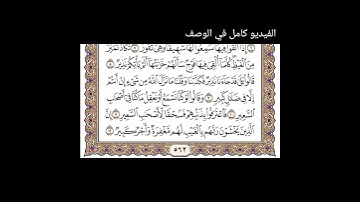 الفيديو كامل في الوصف
إِذَآ أُلْقُوا۟ فِيهَا سَمِعُوا۟ لَهَا شَهِيقًا وَهِىَ تَفُورُ ٧ تَكَادُ تَمَيَّزُ
مِنَ ٱلْغَيْظِ كُلَّمَآ أُلْقِىَ فِيهَا فَوْجٌ سَأَلَهُمْ خَزَنَتُهَآ أَلَمْ يَأْتِكُمْ نَذِيرٌ ٨
قَالُوا۟ بَلَىٰ قَدْ جَآءَنَا نَذِيرٌ فَكَذَّبْنَا وَقُلْنَا مَا نَزَّلَ ٱللَّهُ مِن شَىْءٍ إِنْ أَنتُمْ
إِلَّا فِى ضَلَـٰلٍ كَبِيرٍ ٩ وَقَالُوا۟ لَوْ كُنَّا نَسْمَعُ أَوْ نَعْقِلُ مَا كُنَّا فِىٓ أَصْحَـٰبِ
ٱلسَّعِيرِ ١٠ فَٱعْتَرَفُوا۟ بِذَنۢبِهِمْ فَسُحْقًا لِّأَصْحَـٰبِ ٱلسَّعِيرِ ١١ إِنَّ
ٱلَّذِينَ يَخْشَوْنَ رَبَّهُم بِٱلْغَيْبِ لَهُم مَّغْفِرَةٌ وَأَجْرٌ كَبِيرٌ ١٢
٥٦٢